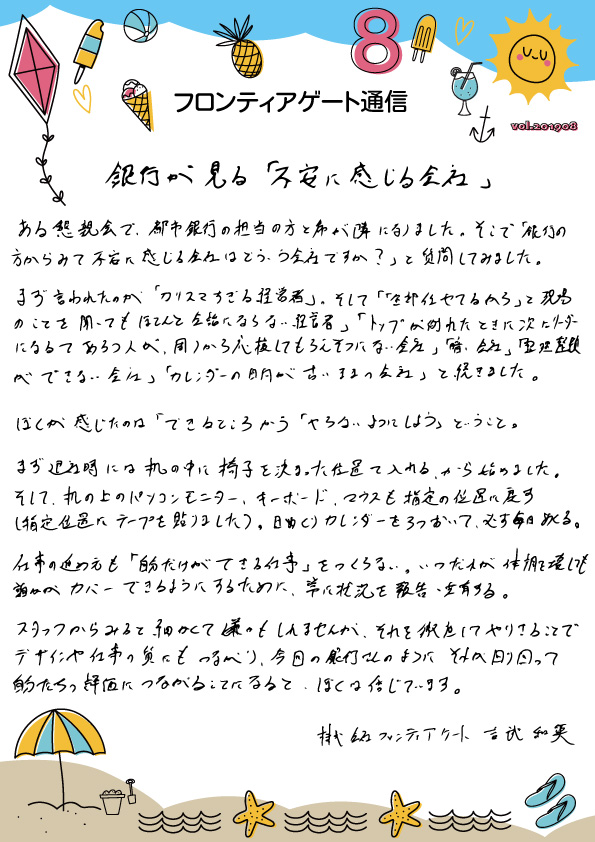 8
フロンティアゲート通信
vol.201908
銀行が見る「不安に感じる会社」
ある懇親会で、都市銀行の担当の方と席が隣になりました。そこで「銀行の
方からみて不安に感じる会社はどういう会社ですか？」と質問してみました。
まず言われたのが「カリスマすぎる経営者」。そして「「全部任せてるから」と現場
のことを聞いてもほとんど会話にならない経営者」「トップが倒れたときに次にリーダー
になるであろう人が、周りから応援してもらえそうにない会社」「暗い会社」「整理整頓
ができない会社」「カレンダーの日付が古いままの会社」と続きました。
ぼくが感じたのは「できるところから「やらないようにしよう」ということ。
まず退社時には机の中に椅子を決まった位置で入れる、から始めました。
そして、机の上のパソコンモニター、キーボード、マウスも指定の位置に戻す
（指定位置にテープを貼りました）。日めくりカレンダーを3つおいて、必ず毎日める。
仕事の進め方も「自分だけができる仕事」をつくらない。いつだれが体調を壊しても
誰かがカバーできるようにするために、常に状況を報告・共有する。
スタッフからみると細かくて嫌かもしれませんが、それを徹底してやりきることで
デザインや仕事の質にもつながり、今回の銀行さんのようにそれが回り回って
自分たちの評価につながることになると、ぼくは信じています。
株式会社フロンティアゲート 吉武 和英